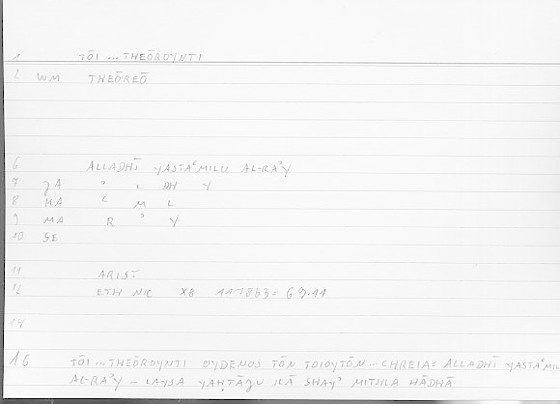 1 TŌI ... THEŌROYNTI
2 WM THEŌREŌ
6 ALLADHĪ YASTAʿMILU AL-RAʾY
7 JA ʾ L DH Y
8 KA ʿ M L
9 MA R ʾ Y
10 SE
11 ARIST
12 ETH NIC X8 1178b3 = 69.11
14
16 TŌI ... THEŌROYNTI OYDENOS TŌN TOIOYTŌN ... CHREIA: ALLADHĪ YASTAʿMIL
AL-RAʾY – LAYSA YAḤTĀJU ILĀ SHAYʾ MITHLA HĀDHĀ